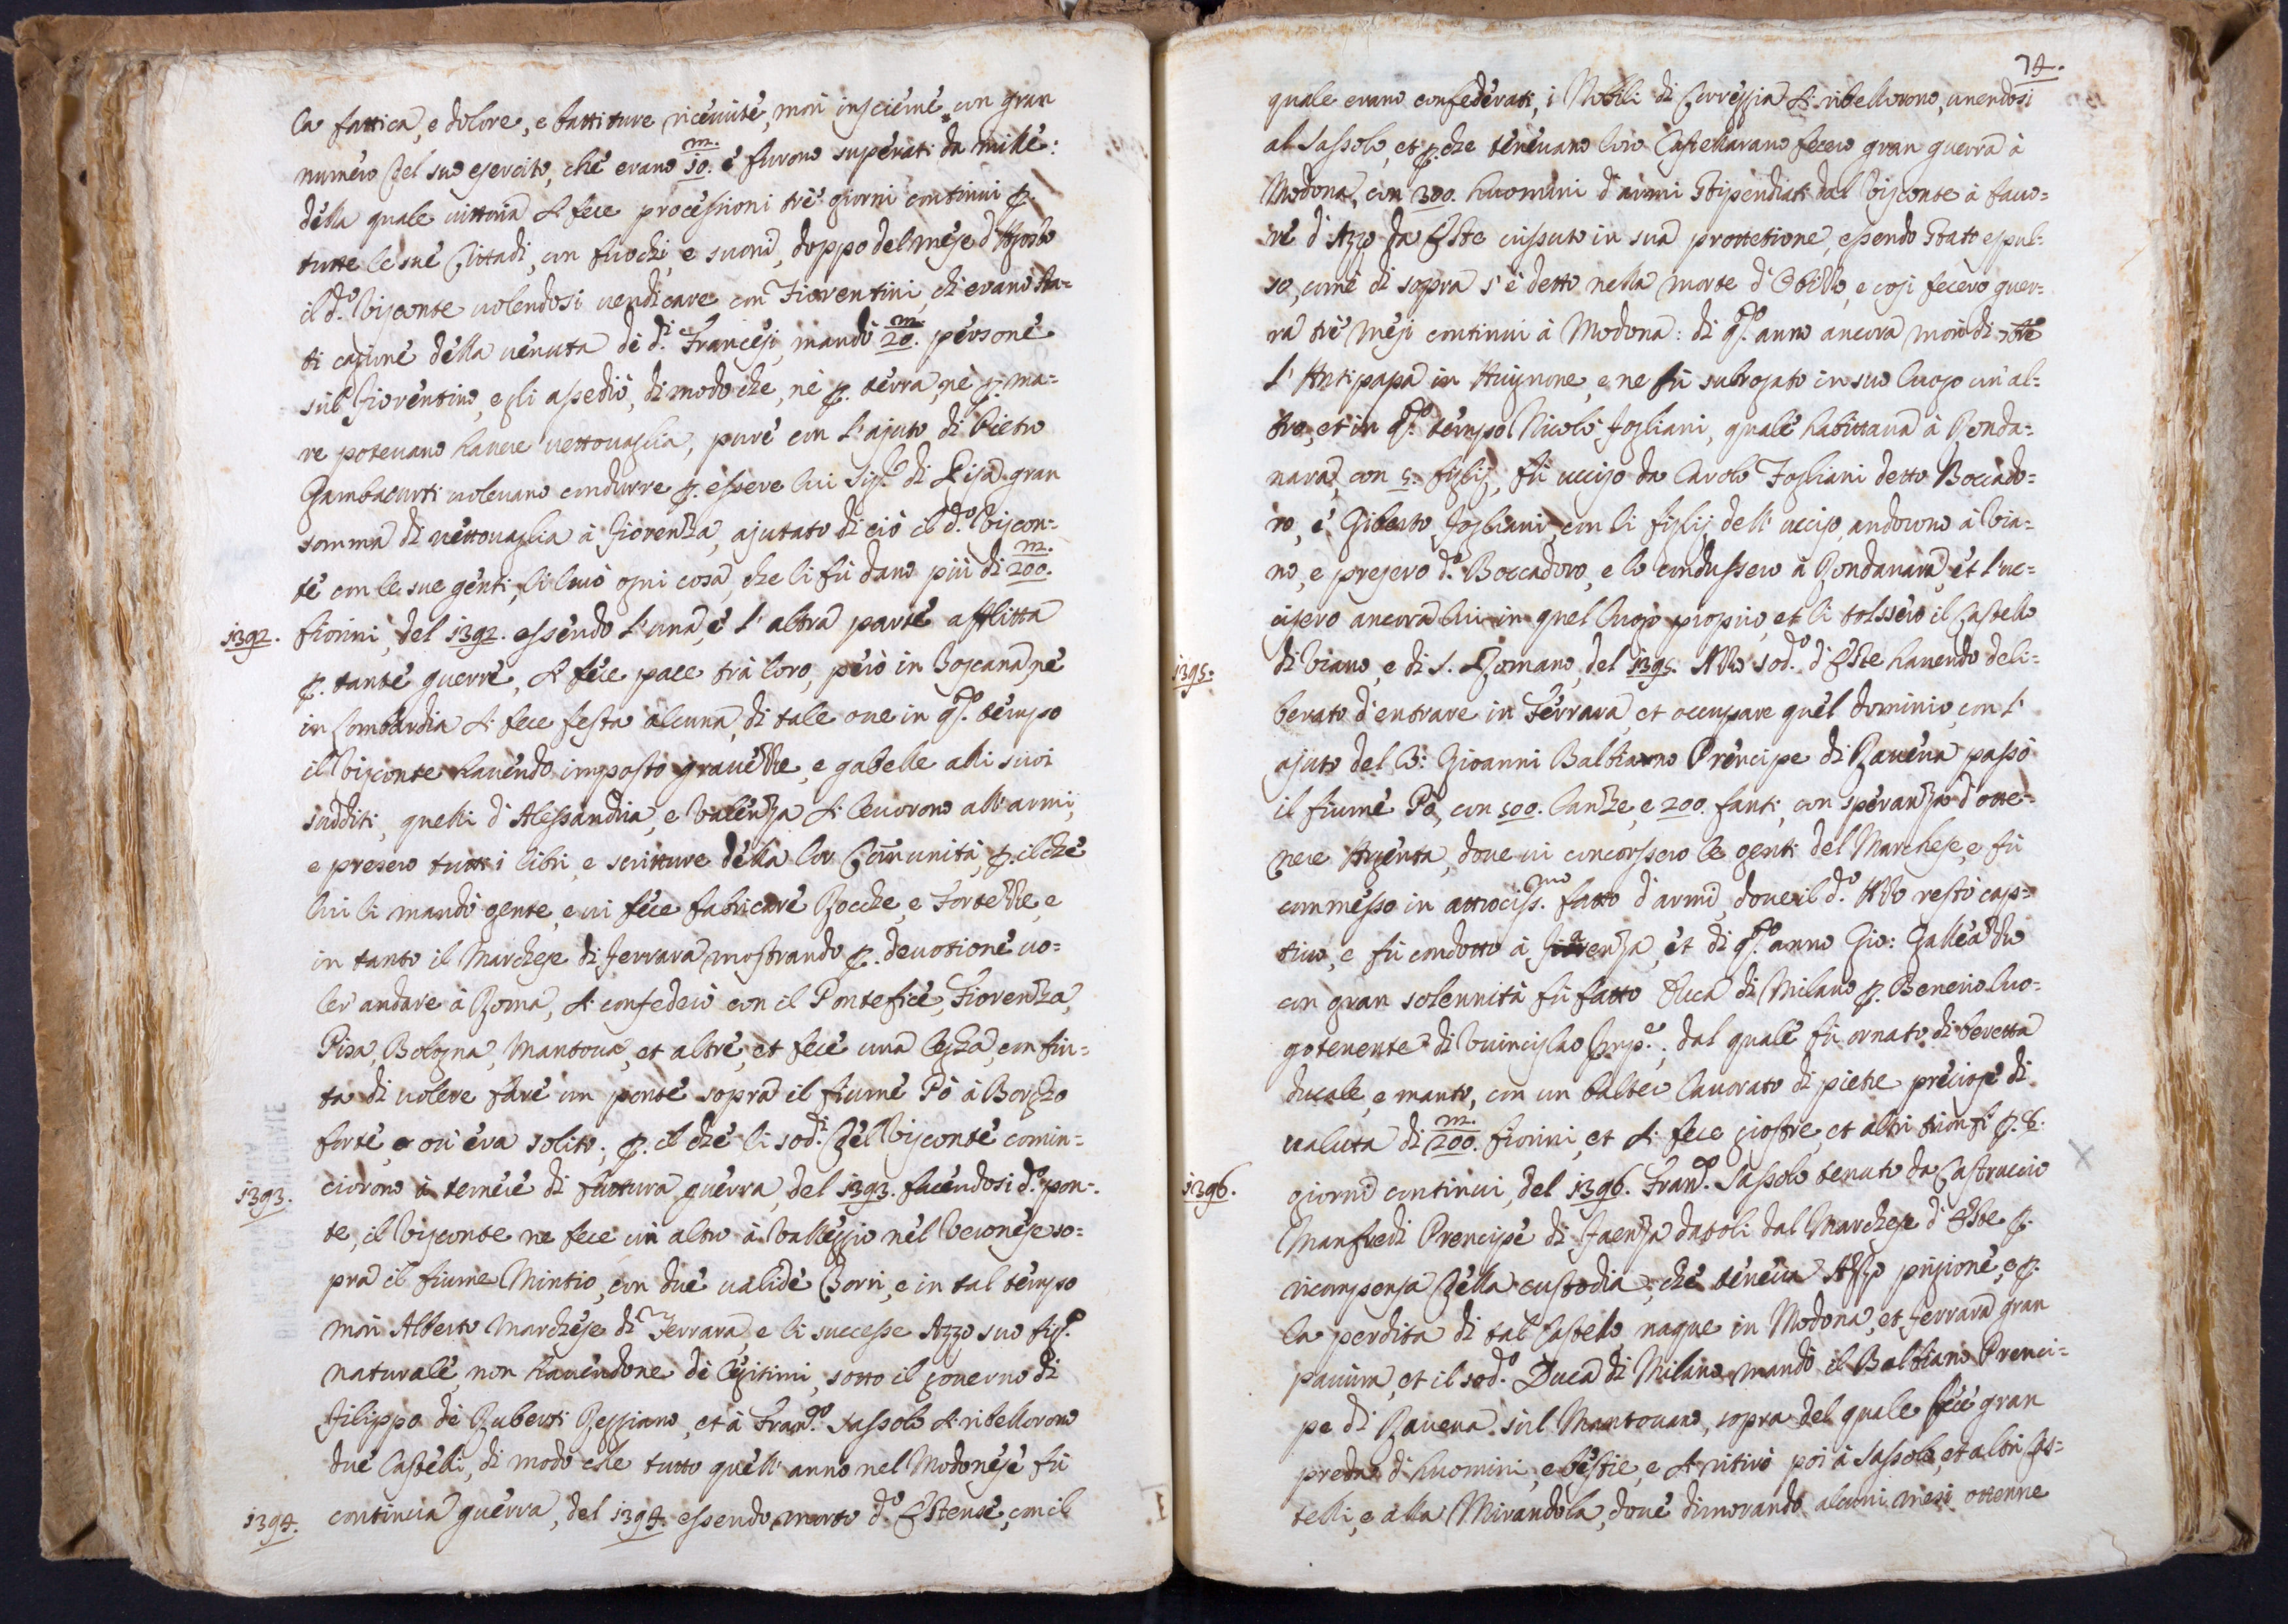 la fattica, e dolore, e battiture riceuute, morì insciemè con gran
numero del suo esercito, che erano 10.m è furono superati da mille:
della quale uittoria si fece processioni trè giorni continui p.
tutte le sue Cittadi, con fuochi, e suoni, doppo del mese d'Agosto
il d.o Visconte uolendosi uendicare con Fiorentini, ch'erano sta=
ti cagione della uenuta de d.i Francesi, mandò 20.m persone
sul Fiorentino, e gli assediò, di modo che, nè p. terra, nè p. ma=
re poteuano hauere uettouaglia, pure con l'ajuto di Pietro
Gambacurti uoleuano condurre p. essere lui Sig.r di Pisa gran
somma di uettouaglia à Fiorenza, ajutato di ciò il d.o Viscon=
te con le sue genti, li leuò ogni cosa, che li fù dano più di 200.m
1392. fiorini, del 1392. essendo l'una, è l'altra parte afflitta
p. tante guerre, si fece pace trà loro, però in Toscana, nè
in Lombardia si fece festa alcuna, di tale oue in q.to tempo
il Visconte hauendo imposto grauezze, e gabelle alli suoi
sudditi, quelli d'Alessandria, e Valenza si leuorono all'armi,
e presero tutti i libri, e scritture della lor Comunità, p. il chè
lui li mandò gente, e ui fece fabricare Rocche, e Fortezze, e
in tanto il Marchese di Ferrara mostrando p. deuotione uo=
ler andare à Roma, si confederò con il Pontefice, Fiorenza,
Pisa, Bologna, Mantoua, et altre, et fece una legha, con fin=
ta di uolere fare un ponte sopra il fiume Pò à Borgho
forte, e ou'era solito; p. il che li sod.i del Visconte comin=
1393. ciorono à temere di futtura guerra, del 1393. facendosi d.o pon=
te, il Visconte ne fece un altro à Valleggio nel Veronese so=
pra il fiume Mintio, con due ualide Torri, e in tal tempo
morì Alberto Marchese di Ferrara, e li successe Azzo suo fig.o
naturale, non hauendone de legitimi, sotto il gouerno di
Filippo de Ruberti Reggiano, et à Fran.co Sassolo si ribellorono
due Castelli, di modo che tutto quell'anno nel Modonese fù
1394. continua guerra, del 1394. essendo morto d.o Estense, con il
74.
quale erano confederati, i Nobili di Correggia si ribellorono, unendosi
al Sassolo, et p.che teneuano loro Castellarano fecero gran guerra à
Modona, con 300. huomini d'armi stipendiati dal Visconte à fauo=
re d'Azzo da Este uissuto in sua protetione, essendo stato espul=
so, come di sopra s'è detto nella morte d'Obizzo, e così fecero guer=
ra trè mesi continui à Modona: di q.to anno ancora morì di
l'Antipapa in Auignone, e ne fù subrogato in suo luogo un'al=
tro, et in q.to tempo Nicolò Fogliani, quale habittaua à Ronda=
nara, con 5. figlij, fù ucciso da Carolo Fogliani detto Boccado=
ro, è Giberto Fogliani, con li figlij dell'ucciso, andorono à Via=
no, e presero d.o Boccadoro, e lo condussero à Rondanara, et l'uc=
cisero ancora lui in quel luogo proprio, et li tolssero il Castello
1395. di Viano, e di S. Romano, del 1395. Azzo sod.o d'Este hauendo deli=
berato d'entrare in Ferrara, et occupare quel dominio, con l'
ajuto del C: Gioanni Balbiano Prencipe di Rauena passò
il fiume Pò, con 500. lanze, e 200. fanti, con speranza d'otte=
nere Argenta, doue ui concorssero le genti del Marchese, e fù
commesso in attrociss.mo fatto d'armi, doue il d.o Azzo restò cap=
tiuo, e fù condotto à Faenza, et di q.to anno Gio: Galleazzo
con gran solennità fù fatto Duca di Milano p. Benerio luo=
gotenente di Vuincislao Imp.e, dal quale fù ornato di beretta
ducale, e manto, con un balteo lauorato di pietre preciose di
ualuta di 200.m fiorini, et si fece giostre, et altri trionfi p. 8.
1396. giorni continui, del 1396. Fran.co Sassolo tenuto da Castruccio
Manfredi Prencipe di Faenza datoli dal Marchese d'Este p.
ricompensa della custodia, che teneua Azzo prigione, e p.
la perdita di tal Castello naque in Modona, et Ferrara gran
paura, et il sod.o Duca di Milano mandò il Balbiano Prenci=
pe di Rauena sul Mantouano, sopra del quale fece gran
preda d'huomini, e bestie, e si ritirò poi à Sassolo, et altri Cas=
telli, e alla Mirandola, doue dimorando alcuni mesi ottenne